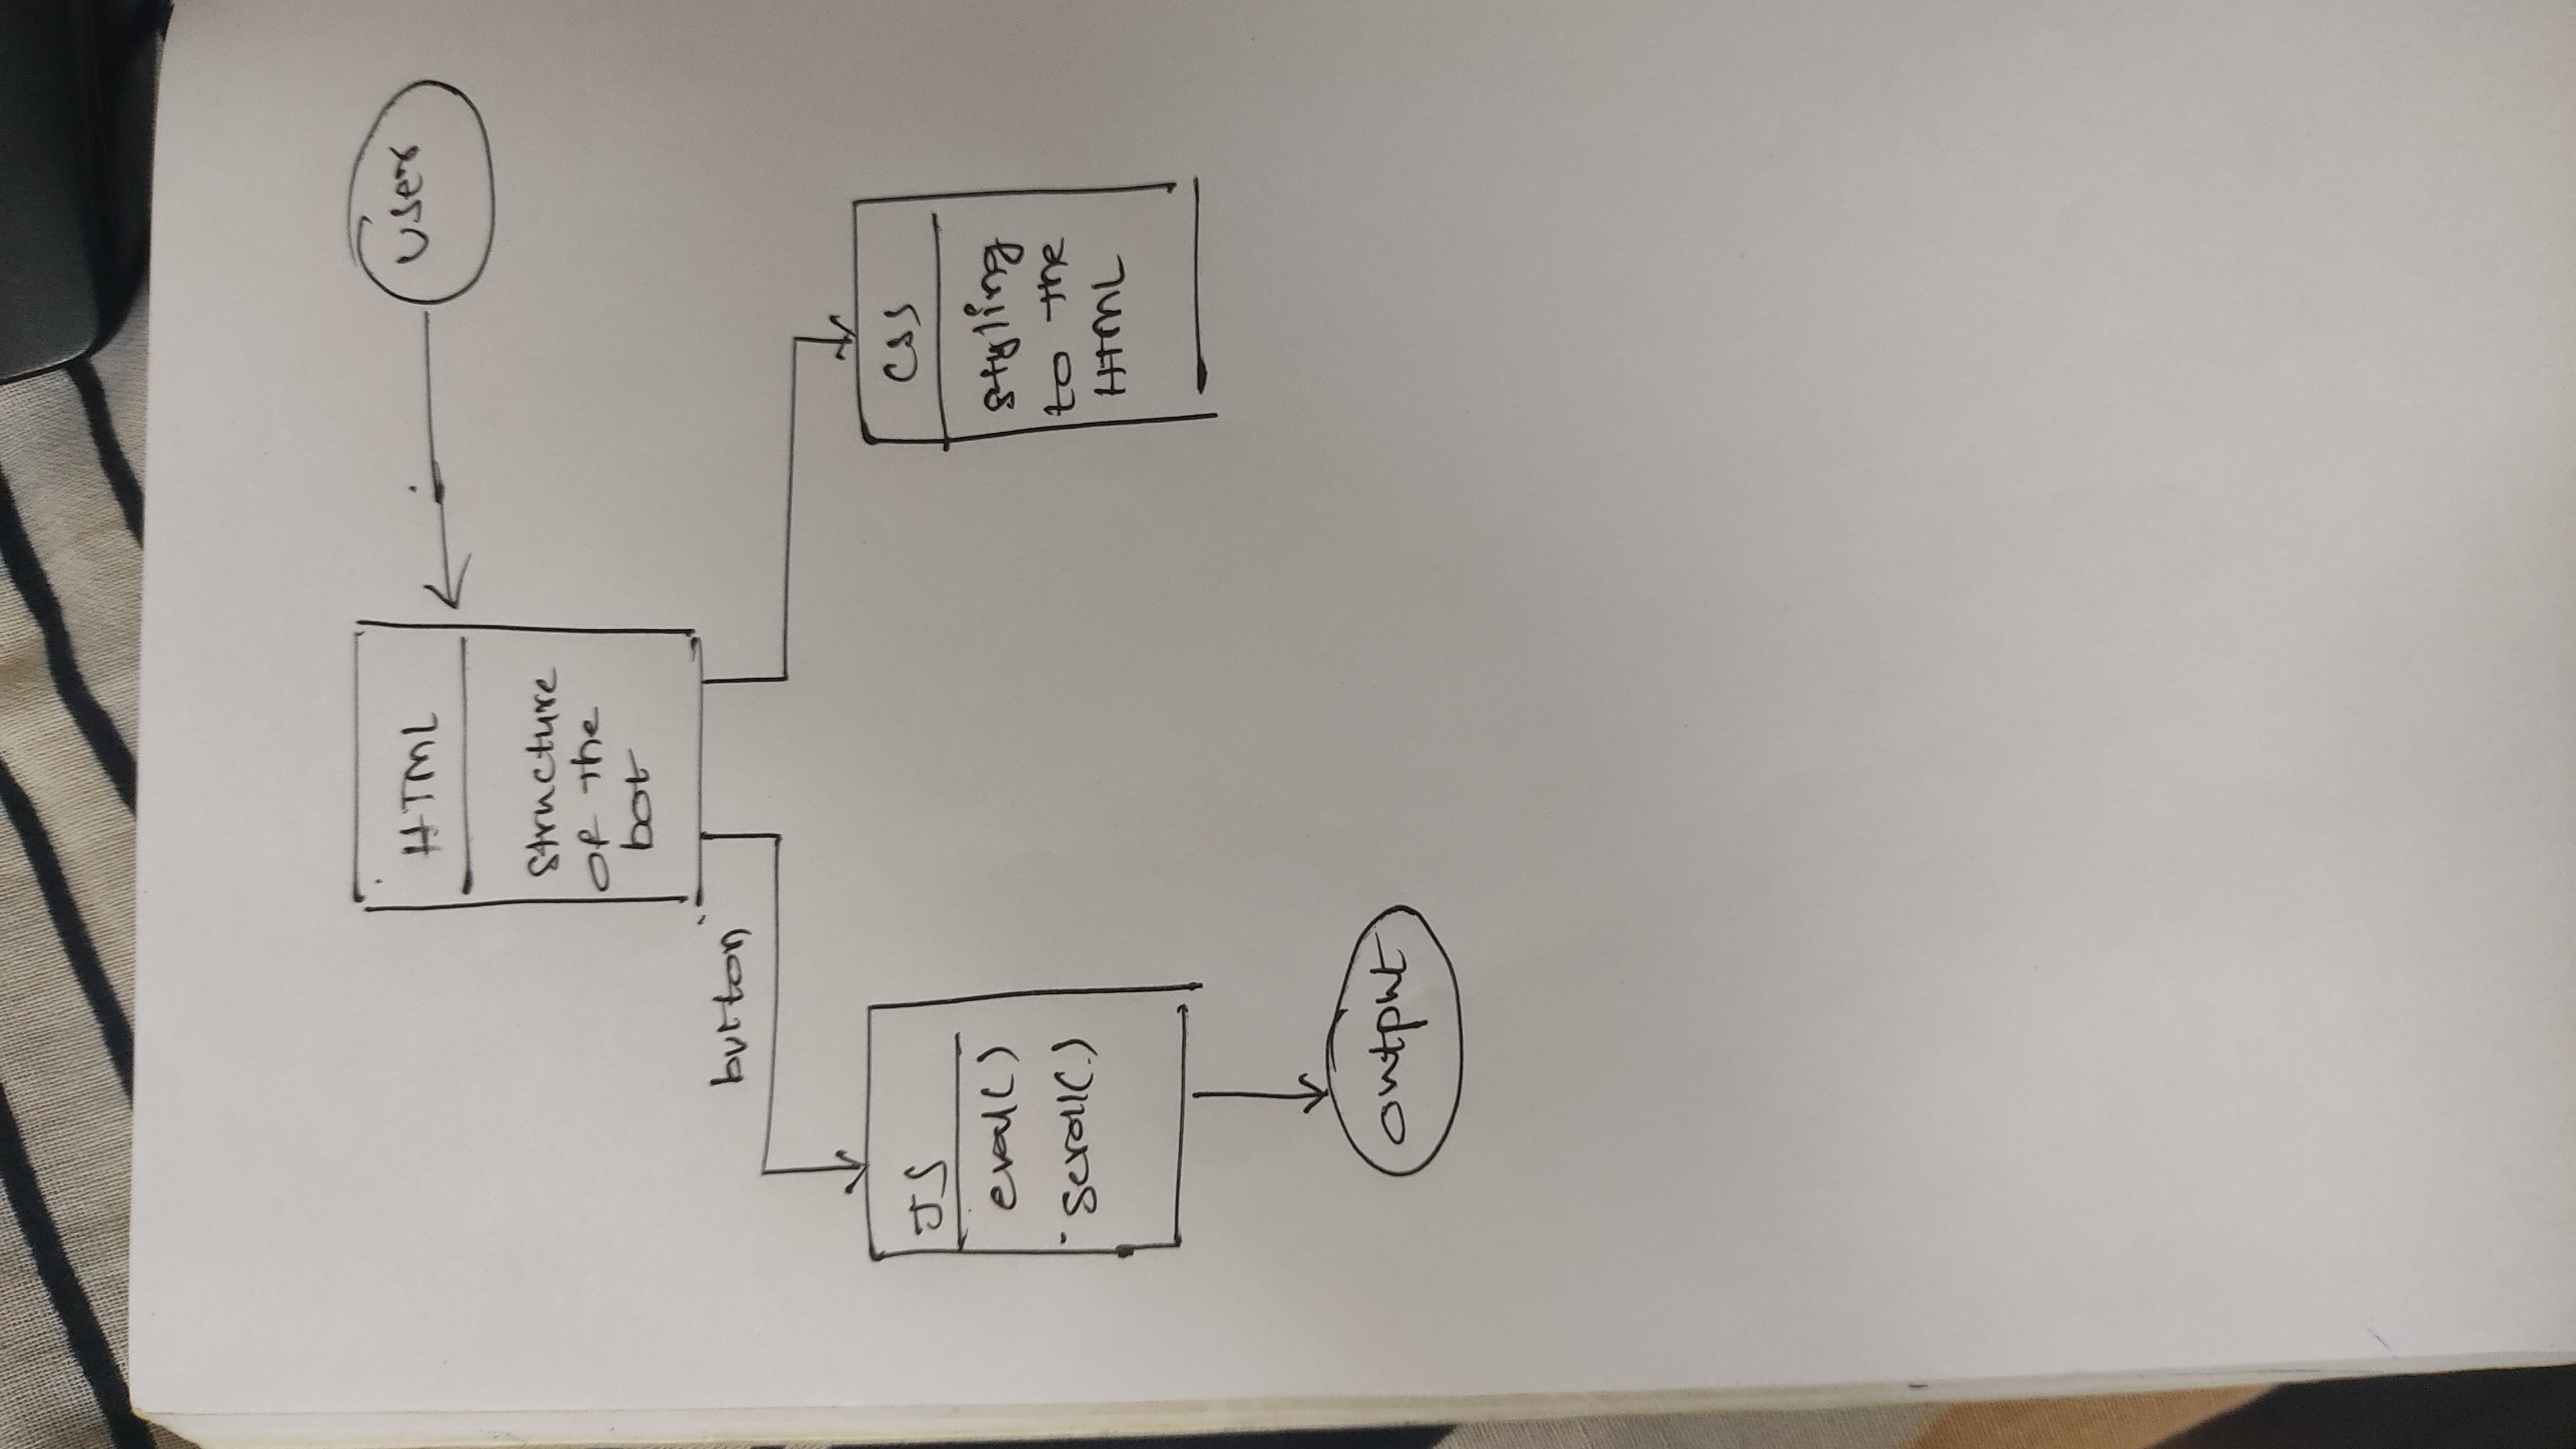 HTML
user
structure
of the
bot
button
JS
eval()
scroll()
CSS
styling
to the
HTML
output